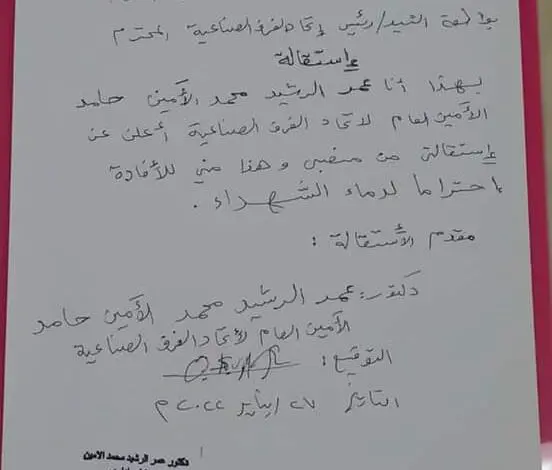 بواسطة السيد/رئيس إتحاد الغرف الصناعية المحترم
إستقالة
بهذا أنا عمر الرشيد محمد الأمين حامد
الأمين العام لاتحاد الغرف الصناعية أعلن عن
إستقالتي من منصبي وهذا مني للأفادة
إحتراما لدماء الشهداء .
مقدم الأستقالة :
دكتور: عمر الرشيد محمد الأمين حامد
الأمين العام لأتحاد الغرف الصناعية
التوقيع :
التاريخ ٢٧ يناير ٢٠٢٢ م
دكتور عمر الرشيد محمد الامين